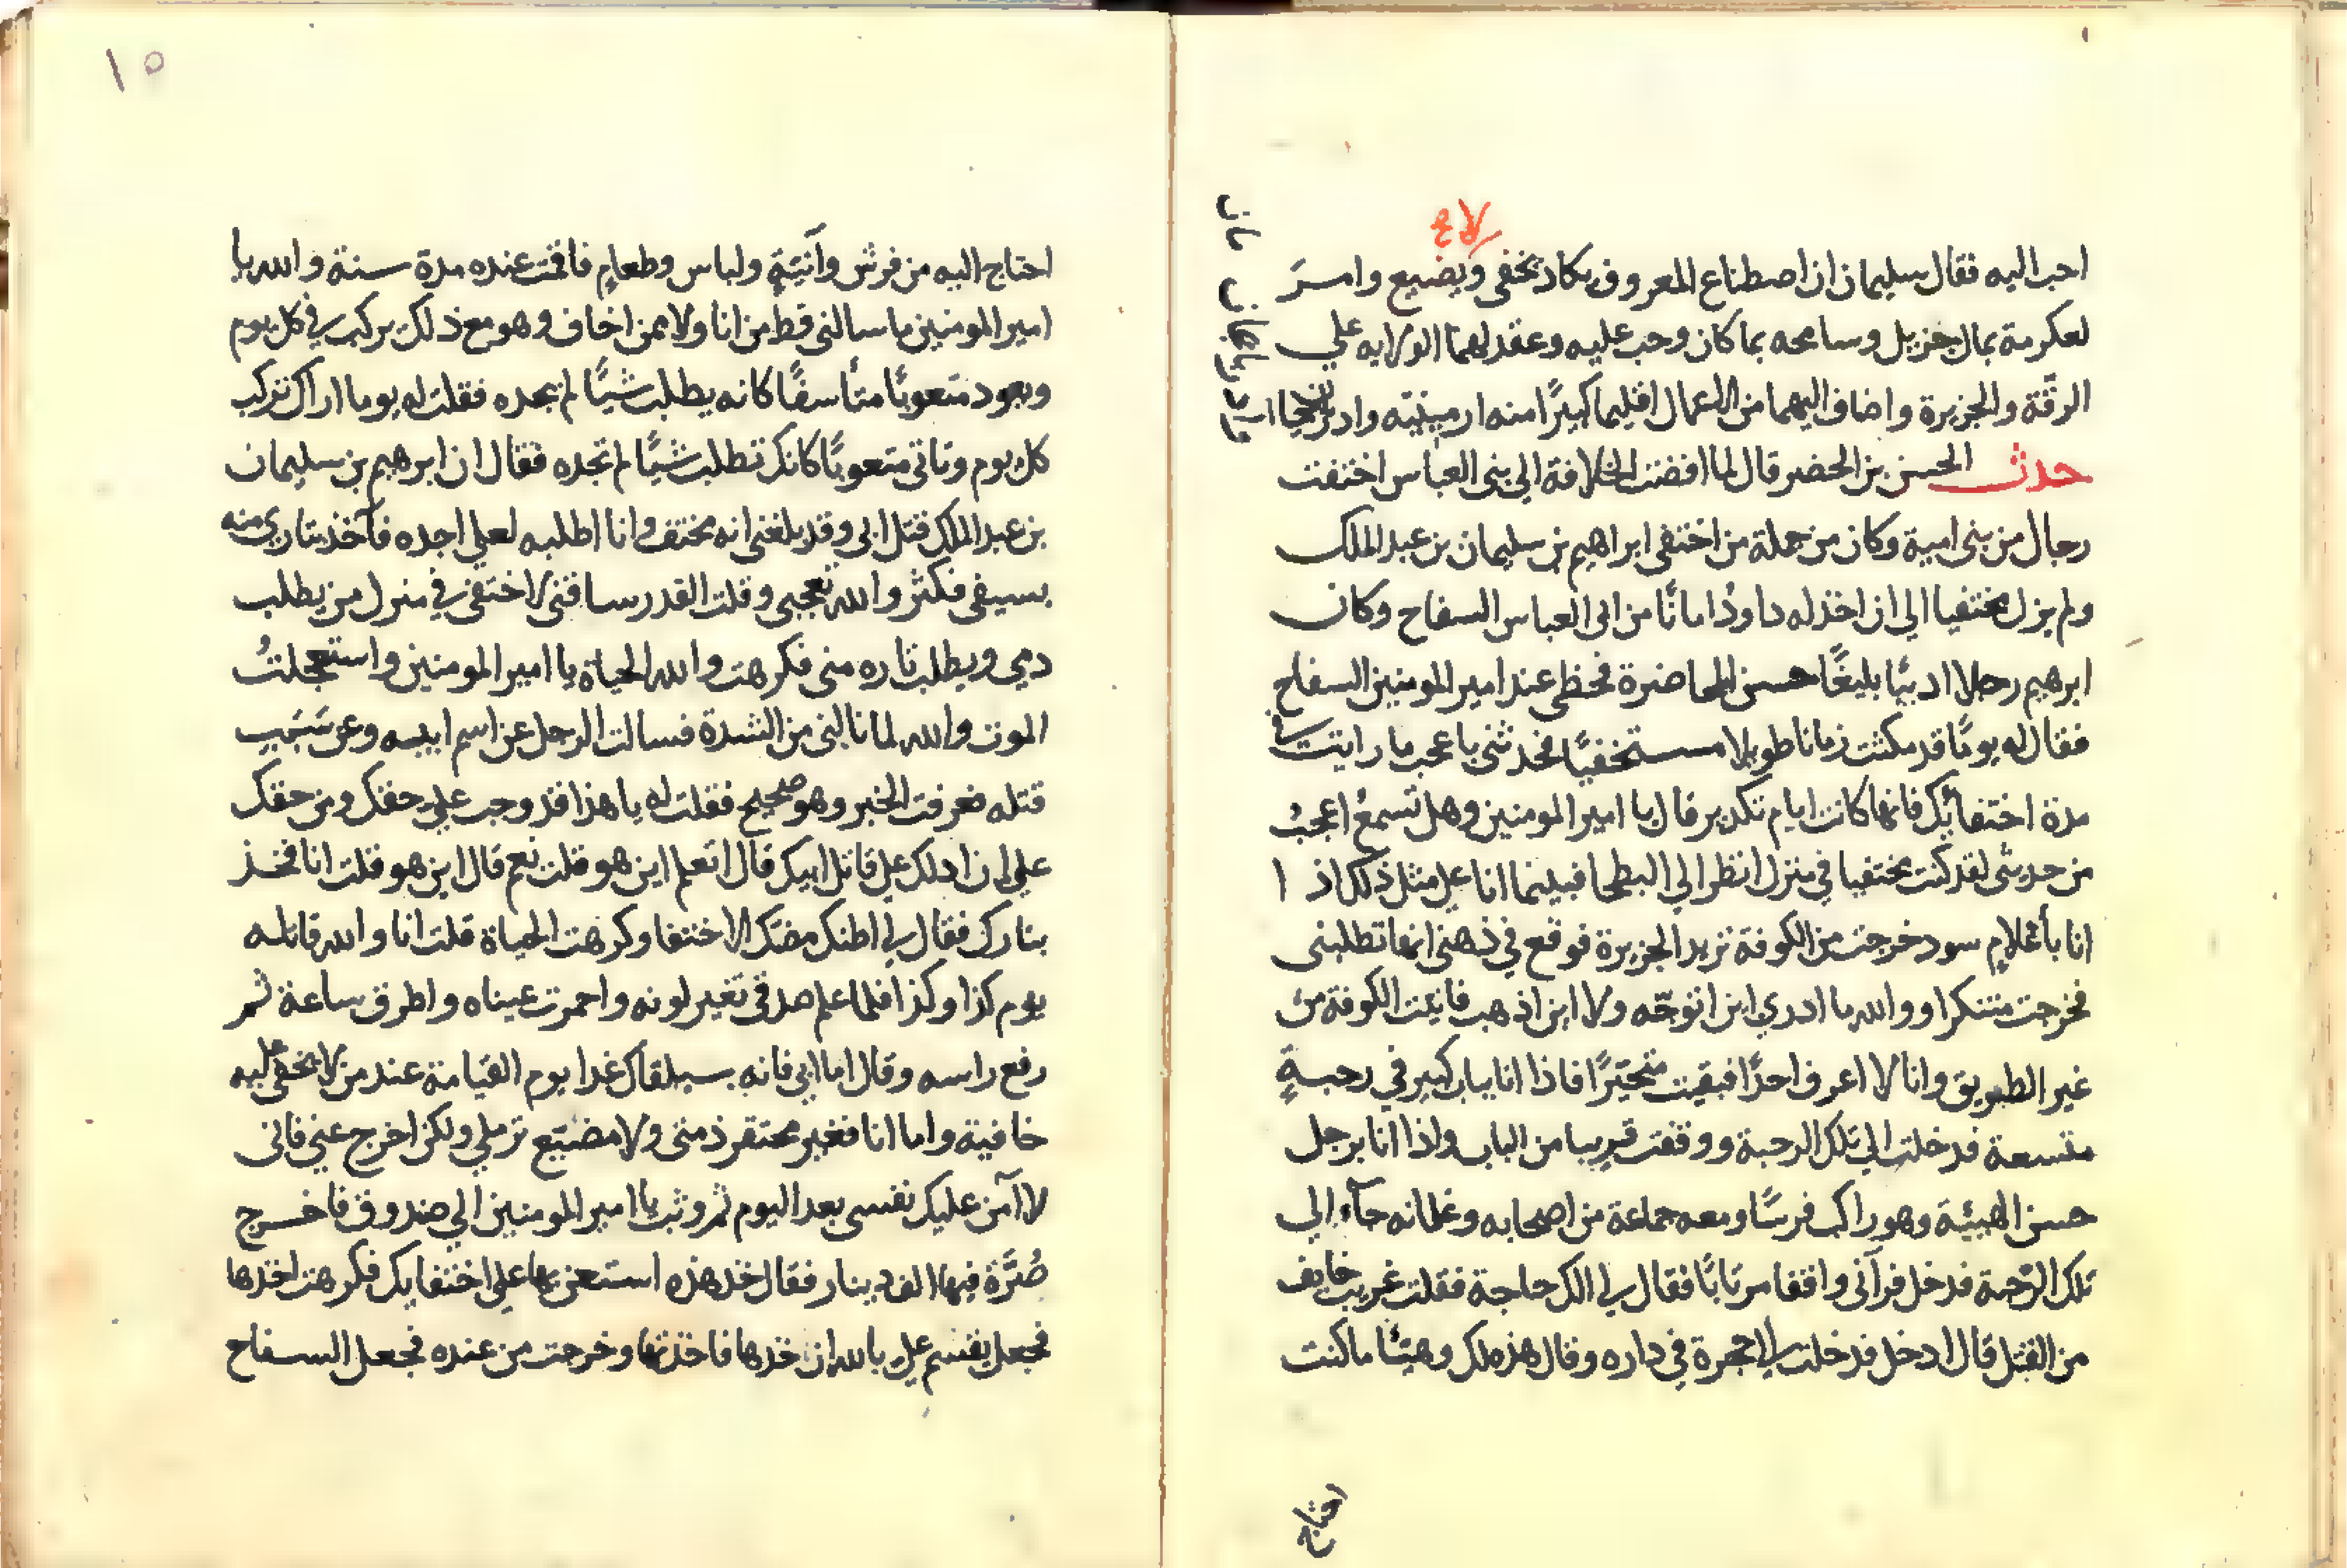 احب اليه فقال سليمان ان اصطناع المعروف يكاد يخفى ويضيع وامر
لعكرمة بمال جزيل وسامحه بما كان وجب عليه وعقد لهما الولايه علي
الرقّة والجزيرة واضاف اليهما من الاعمال اقليما كبيرًا منه ارمينيه
حدث الحسن بن الحضر قال لما افضت الخلافة الي بني العباس اختفت
رجال من بني امية وكان من جملة من اختفى ابراهيم بن سليمان بن عبد الملك
ولم يزل مختفيا الي ان اخذ له داودُ امانًا من ابى العباس السفاح وكان
ابرهيم رجلا اديبًا بليغًا حسن المحاضرة فحظى عند امير المومنين السفاح
فقال له يومًا قد مكثت زمانا طويلا مستخفيًا فحدثنى باعجب ما رايت في
مدة اختفائك فانها كانت ايام تكدير قال يا امير المومنين وهل تسمعُ اعجبُ
من حديثى لقد كنت مختفيا في منزل انظر الي البطحا فبينما انا على مثل ذلك اذ ا
انا بأعلامٍ سود خرجت من الكوفة تريد الجزيرة فوقع في ذهنى انها تطلبنى
فخرجت متنكرا ووالله ما ادري اين اتوجّه ولا اين اذهب فاتيت الكوفة من
غير الطريق وانا لا اعرف احدًا فبقيت متحيّرًا فاذا انا بباب كبير في رحبةٍ
متسعة فدخلت الي تلك الرحبة ووقفت قريبا من الباب واذا انا برجل
حسن الهيئة وهو راكب فرسًا ومعه جماعة من اصحابه وغلمانه جآء الي
تلك الرّحبة فدخل فرآنى واقفا مرتابًا فقال لي الك حاجة فقلت غريب خايف
من القتل قال ادخل فدخلت الي حجرة في داره وقال هذه لك وهيّئا ما كنت
احتاج
١٥
احتاج اليه من فرش وآنيةٍ ولباس وطعامٍ فاقمت عنده مدة سنة والله يا
امير المومنين ما سالنى قط من انا ولا ممن اخاف وهو مع ذلك يركب في كل يوم
ويعود متعوبًا متأسفًا كانه يطلب شيًا لم يجده فقلت له يوما اراك تركب
كل يوم وتاتى متعوبًا كانك تطلب شيًا لم تجده فقال ان ابرهيم بن سليمان
بن عبد الملك قتل ابي وقد بلغنى انه مختف وانا اطلبه لعلي اجده فآخذ بثاري منه
بسيفى فكثر والله تعجبى وقلت القدر ساقنى لاختفى في منزل من يطلب
دمي ويطلب ثاره منى فكرهت والله الحياة يا امير المومنين واستعجلتُ
الموت والله لما نالنى من الشدة فسالت الرجل عن اسم ابيه وعن سَبَب
قتله فعرفت الخبر وهو صحيح فقلت له يا هذا قد وجب علي حقك ومن حقك
علي ان ادلك على قاتل ابيك قال اتعلم اين هو قلت نعم قال اين هو قلت انا فخذ
بثارك فقال لي اظنك مضّك الاختفا وكرهت الحياة قلت انا والله قاتله
يوم كذا وكذا فلما علم صدقى تغير لونه واحمرت عيناه واطرق ساعة ثم
رفع راسه وقال اما ابي فانه سيلقاك غدا يوم القيامة عند من لا يخفى عليه
خافية واما انا فغير محتقر ذمتى ولا مضيّع نزملي ولكن اخرج عني فانى
لا آمن عليك نفسى بعد اليوم ثم وثب يا امير المومنين الي صندوق فاخرج
صُرَّة فيها الف دينار فقال خذ هذه استعن بها علي اختفايك فكرهت اخذها
فجعل يقسم على بالله ان خذها فاخذتها وخرجت من عنده فجعل السفاح